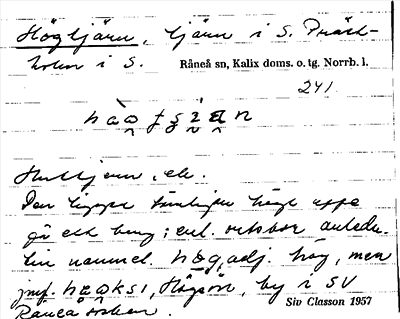 Högtjärn, tjärn i S. Präst-
holm i S. Råneå sn, Kalix doms. o. tg. Norrb. l.
241

.
Den ligger tämligen högt uppe
på ett berg; enl. ortsbor anledn.
till namnet. adj. hög, men
jmf. Högsön, by i SV
Råneå socken. Siv Classon 1957